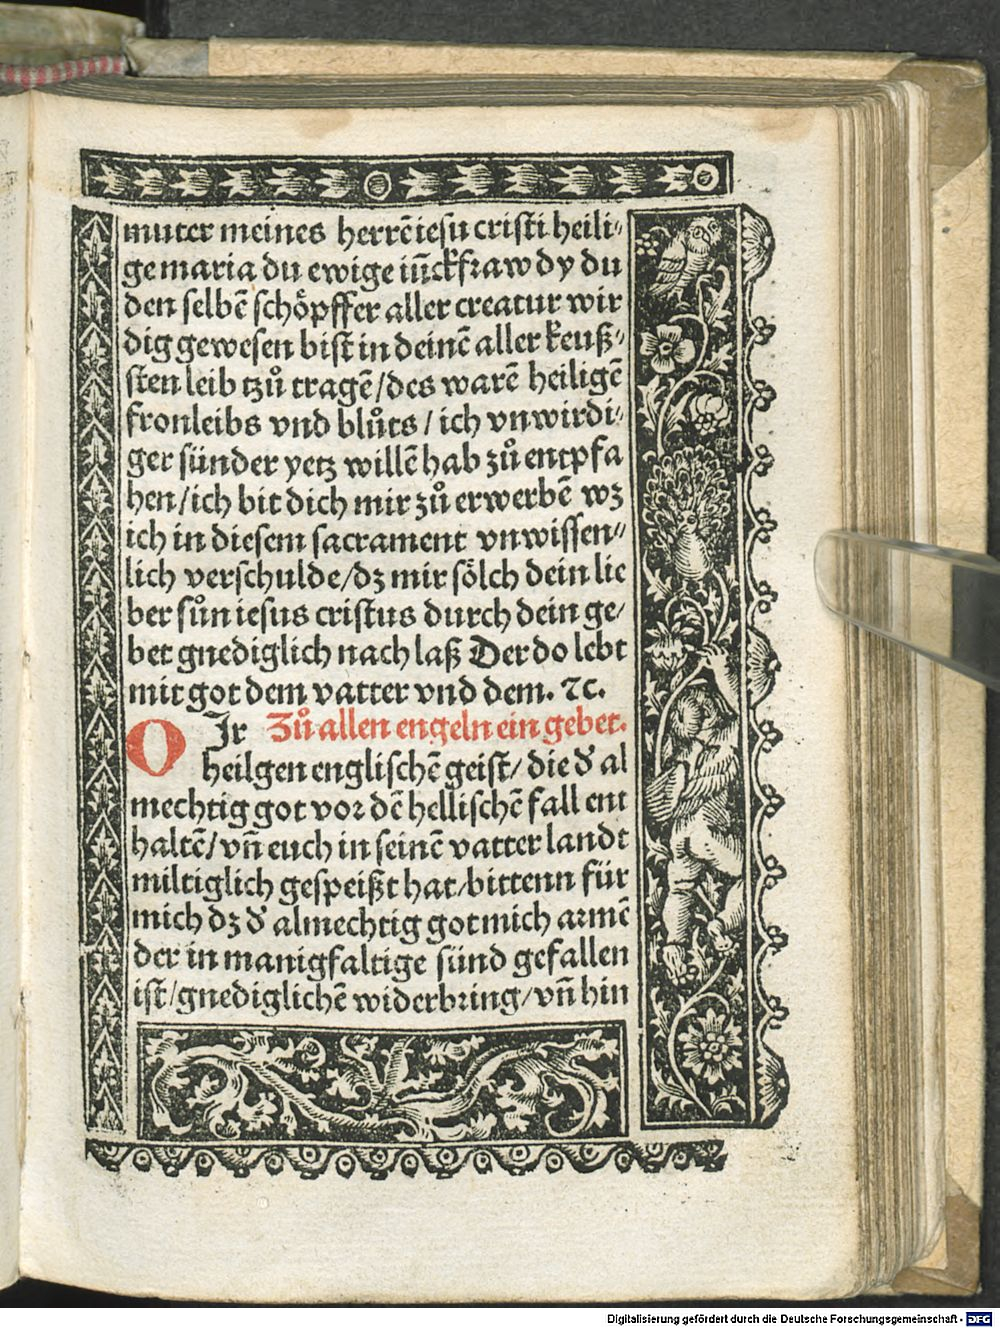 muter meines herrē iesu cristi heili⸗
ge maria du ewige iūckfraw dy du
den selbē schoͤpffer aller creatur wir
dig gewesen bist in deinē aller keuß⸗
sten leib tzuͦ tragē/des warē heiligē
fronleibs vnd bluͦts/ich vnwirdi⸗
ger sünder yetz willē hab zuͦ entpfa
hen/ich bit dich mir zuͦ erwerbē wz
ich in diesem sacrament vnwissen⸗
lich verschulde/dz mir soͤlch dein lie
ber suͦn iesus cristus durch dein ge⸗
bet gnediglich nach laß Der do lebt
mit got dem vatter vnd dem. ⁊c.
Zuͦ allen engeln ein gebet.
O Jr
heilgen englischē geist/die d' al
mechtig got vor dē hellischē fall ent
haltē/vn̄ euch in seinē vatter landt
miltiglich gespeißt hat/bittenn für
mich dz d' almechtig got mich armē
der in manigfaltige sünd gefallen
ist/gnediglichē widerbring/vn̄ hin
Digitalisierung gefördert durch die Deutsche Forschungsgemeinschaft - DFG